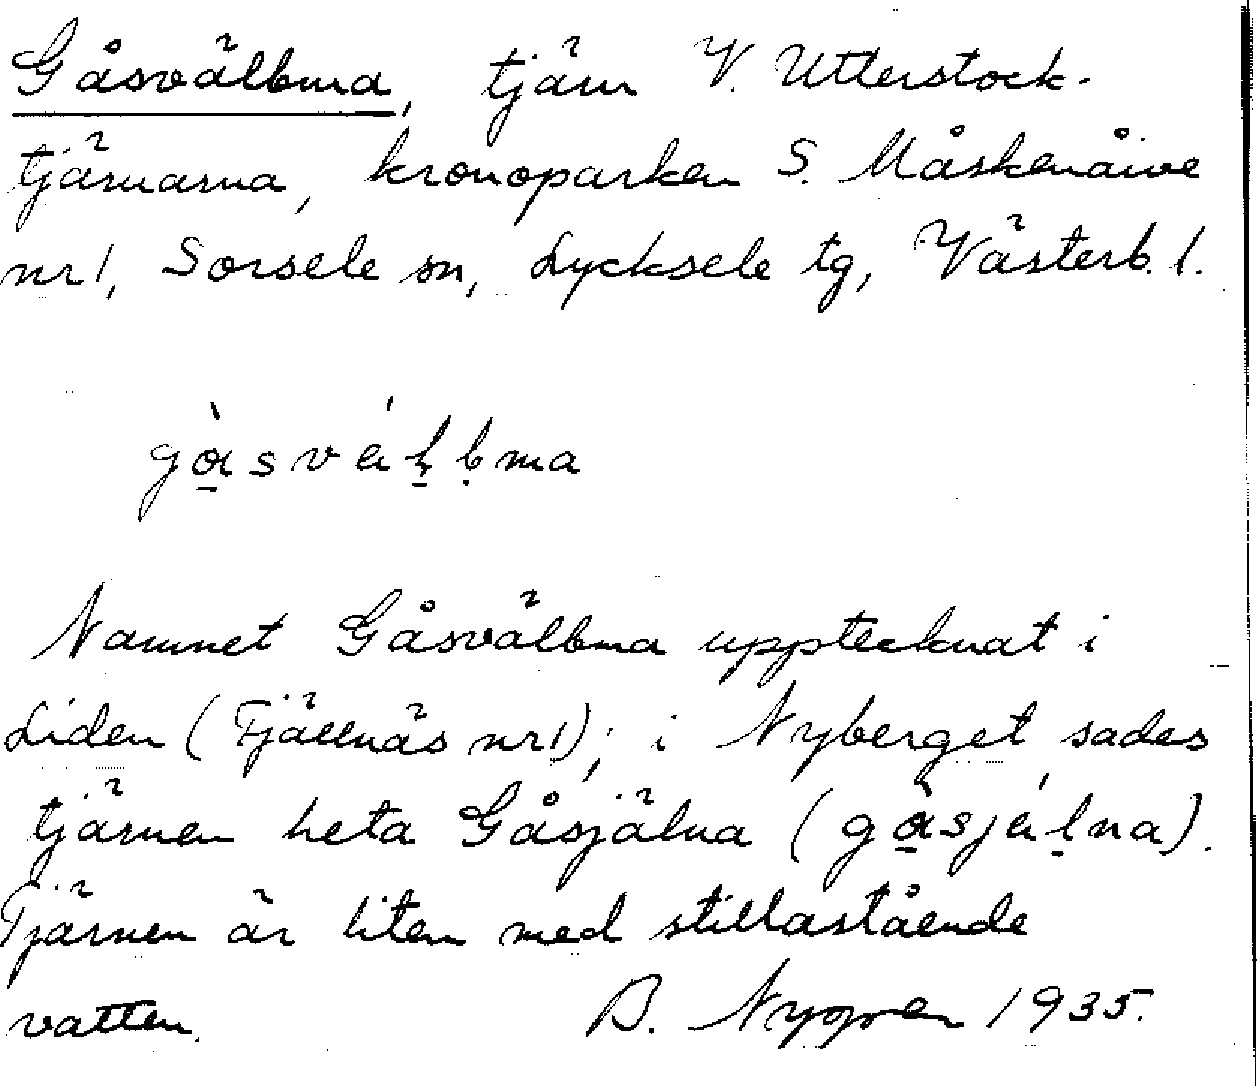 Gåsvälbma, tjärn V. Utterstock-
tjärnarna, kronoparken S. Måskenåive
nr 1, Sorsele sn, Lycksele tg, Västerb. l.
Namnet Gåsvälbma upptecknat i
Liden (Fjällnäs nr 1); i Nyberget sades
tjärnen heta Gåsjälna (gὰsjálna).
Tjärnen är liten med stillastående
vatten. B. Nygren 1935.